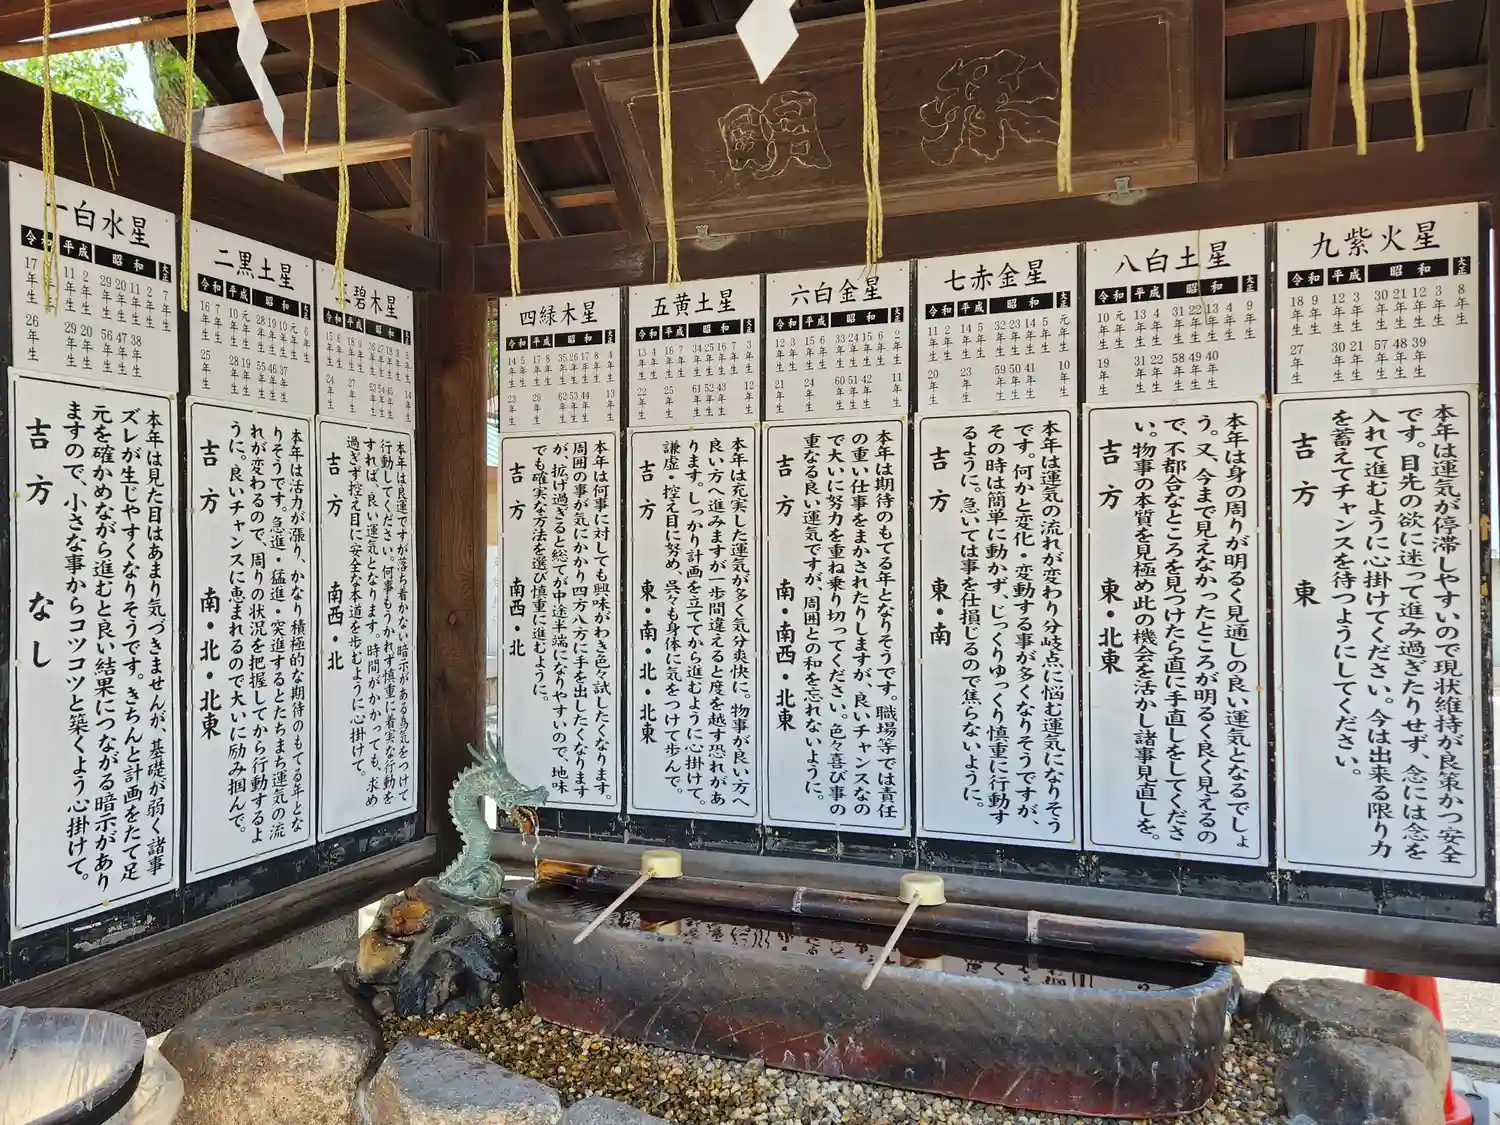 一白水星
令和 平成 昭和 大正
17年生 11年生 2年生 29年生 20年生 11年生 2年生 7年生
26年生 29年生 20年生 56年生 47年生 38年生
本年は見た目はあまり気づきませんが、基礎が弱く諸事
ズレが生じやすくなりそうです。きちんと計画をたて足
元を確かめながら進むと良い結果につながる暗示があり
ますので、小さな事からコツコツと築くよう心掛けて。
吉方 なし
二黒土星
令和 平成 昭和 大正
16年生 7年生 10年生 元年生 28年生 19年生 10年生 元年生 6年生
25年生 28年生 19年生 55年生 46年生 37年生
本年は活力が漲り、かなり積極的な期待のもてる年とな
りそうです。急進・猛進・突進するとたちまち運気の流
れが変わるので、周りの状況を把握してから行動するよ
うに。良いチャンスに恵まれるので大いに励み掴んで。
吉方 南・北・北東
三碧木星
令和 平成 昭和 大正
15年生 6年生 18年生 9年生 36年生 27年生 18年生 9年生 5年生
24年生 27年生 63年生 54年生 45年生 14年生
本年は良運ですが落ち着かない暗示がある為気をつけて
行動してください。何事もうかれず慎重に着実な行動を
すれば、良い運気となります。時間がかかっても、求め
過ぎず控え目に安全な本道を歩むように心掛けて。
吉方 南西・北
四緑木星
令和 平成 昭和 大正
14年生 5年生 17年生 8年生 35年生 26年生 17年生 8年生 4年生
23年生 26年生 62年生 53年生 44年生 13年生
本年は何事に対しても興味がわき色々試したくなります。
周囲の事が気にかかり四方八方に手を出したくなります
が、拡げ過ぎると総てが中途半端になりやすいので、地味
でも確実な方法を選び慎重に進むように。
吉方 南西・北
五黄土星
令和 平成 昭和 大正
13年生 4年生 16年生 7年生 34年生 25年生 16年生 7年生 3年生
22年生 25年生 61年生 52年生 43年生 12年生
本年は充実した運気が多く気分爽快に。物事が良い方へ
良い方へ進みますが一歩間違えると度を越す恐れがあ
ります。しっかり計画を立ててから進むように心掛けて。
謙虚・控え目に努め、呉々も身体に気をつけて歩んで。
吉方 東・南・北・北東
六白金星
令和 平成 昭和 大正
12年生 3年生 15年生 6年生 33年生 24年生 15年生 6年生 2年生
21年生 24年生 60年生 51年生 42年生 11年生
本年は期待のもてる年となりそうです。職場等では責任
の重い仕事をまかされたりしますが、良いチャンスなの
で大いに努力を重ね乗り切ってください。色々喜び事の
重なる良い運気ですが、周囲との和を忘れないように。
吉方 南・南西・北東
七赤金星
令和 平成 昭和 大正
11年生 2年生 14年生 5年生 32年生 23年生 14年生 5年生 元年生
20年生 23年生 59年生 50年生 41年生 10年生
本年は運気の流れが変わり分岐点に悩む運気になりそう
です。何かと変化・変動する事が多くなりそうですが、
その時は簡単に動かず、じっくりゆっくり慎重に行動す
るように。急いては事を仕損じるので焦らないように。
吉方 東・南
八白土星
令和 平成 昭和 大正
10年生 元年生 13年生 4年生 31年生 22年生 13年生 4年生 9年生
19年生 31年生 22年生 58年生 49年生 40年生
本年は身の周りが明るく見通しの良い運気となるでしょ
う。又、今まで見えなかったところが明るく良く見えるの
で、不都合なところを見つけたら直に手直しをしてくださ
い。物事の本質を見極め此の機会を活かし諸事見直しを。
吉方 東・北東
九紫火星
令和 平成 昭和 大正
18年生 9年生 12年生 3年生 30年生 21年生 12年生 3年生 8年生
27年生 30年生 21年生 57年生 48年生 39年生
本年は運気が停滞しやすいので現状維持が良策かつ安全
です。目先の欲に迷って進み過ぎたりせず、念には念を
入れて進むように心掛けてください。今は出来る限り力
を蓄えてチャンスを待つようにしてください。
吉方 東